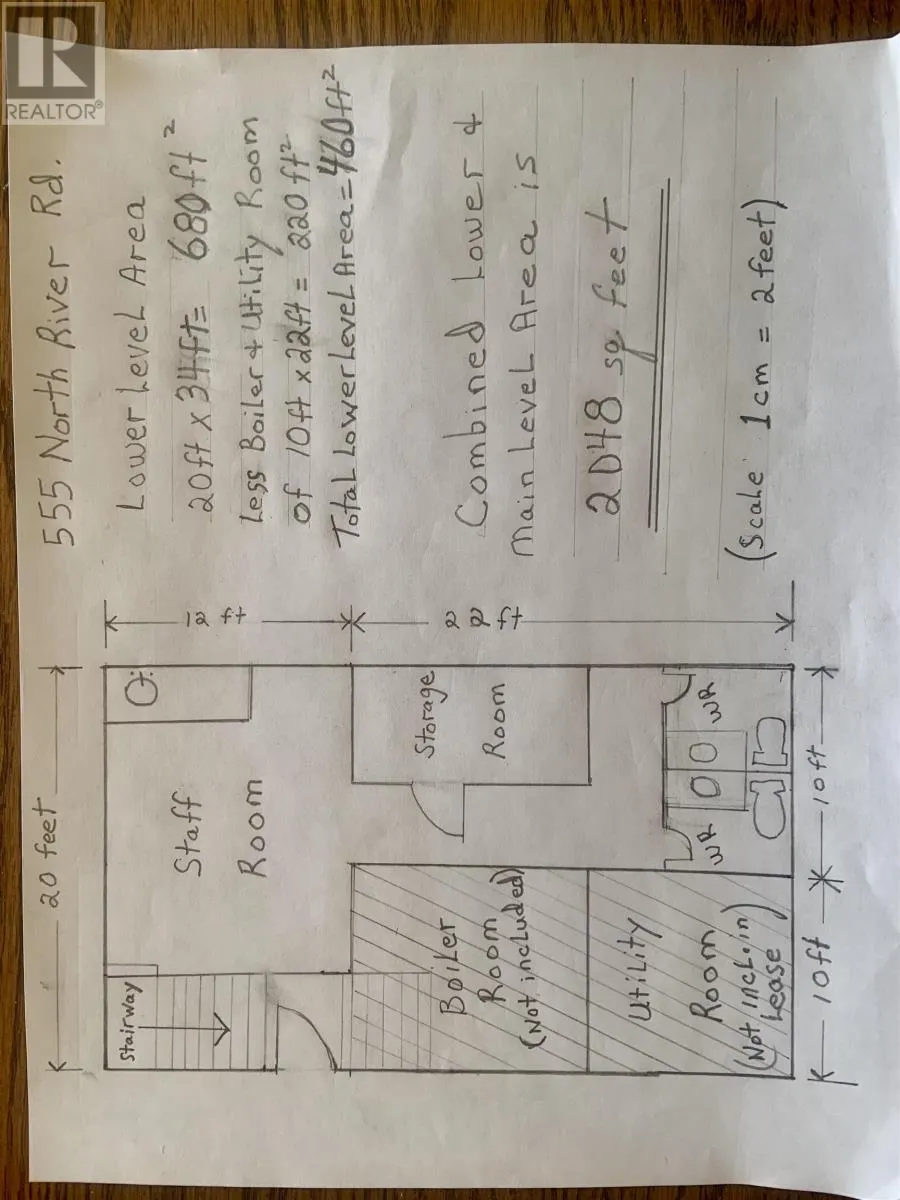 REALTOR®
555 North River Rd.
Lower Level Area
20ft x 34ft = 680ft²
Less Boiler & Utility Room
of 10ft x 22ft = 220ft²
Total Lower Level Area = 460ft²
Combined Lower &
Main Level Area is
2048 sq feet
(Scale 1cm = 2feet)
20 feet
12 ft
22 ft
Stairway
Staff
Room
Storage
Room
Boiler
Room
(Not included)
Utility
Room
(Not incl. in
Lease)
WR
WR
10ft
10ft